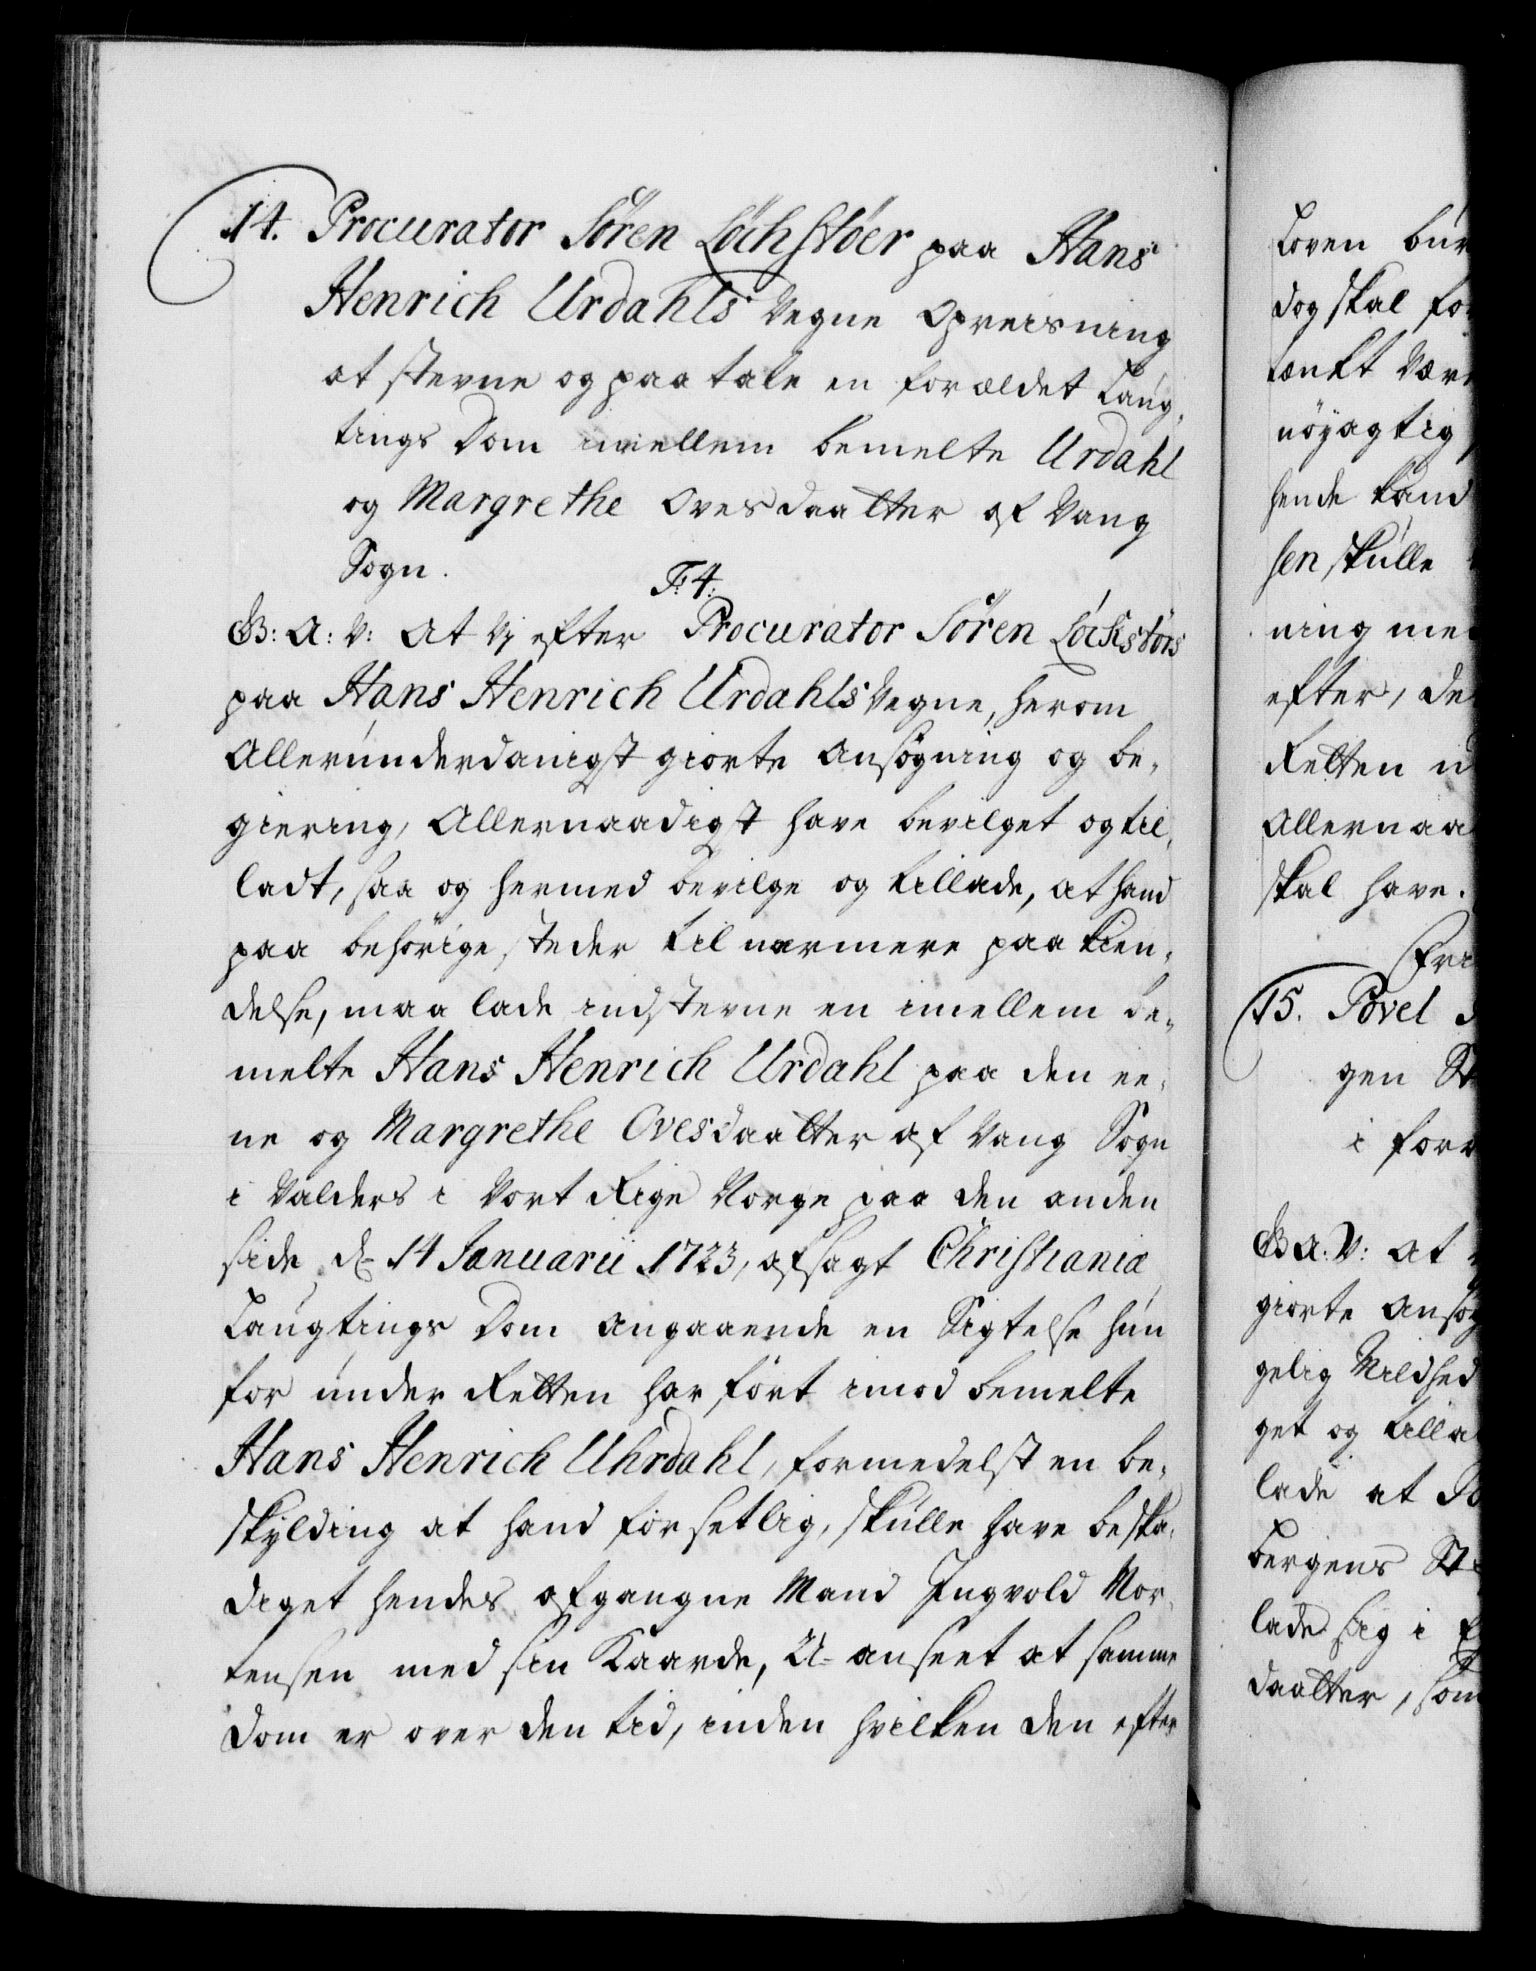 14. Procurator Sören Löchstöer paa Hans
Henrich Urdahls Vegne Opreisning
at stevne og paatale en forældet Laug,
tings Dom imellem bemelte Urdahl
og Margrethe Ovesdaatter af Vang
Sogn.
F: 4:
G: A: V: At Vj efter Procurator Sören Lochstörs
paa Hans Henrich Urdahls Vegne, herom
Allerunderdanigst giorte Ansögning og be,
giering, Allernaadigst have bevilget og til,
ladt, saa og hermed bevilge og tillade, at hand
paa behörige steder til nærmere paakien,
delse, maa lade indstevne en imellem be,
melte Hans Henrich Urdahl paa den ee,
ne og Margrethe Ovesdaatter af Vang Sogn
i Valders i Vort Rige Norge paa den anden
side d. 14 Januarii 1723, afsagt Christiania
Laugtings Dom angaaende en Sigtelse hun
for under Retten har fört imod bemelte
Hans Henrich Uhrdahl, formedelst en be,
skylding at hand forsetlig, skulle have beska,
diget hendes afgangne Mand Ingvold Mor,
tensen med sin Kaarde, U-anseet at samme
Dom er over den tid, inden hvilken den efter
Loven bur
dog skal fo
tænkt Vær
nöyagtig
hende kand
sen skulle
ning me
efter, de
Retten u
Allernaa
skal have.
15. Povel
gen St
i forr
G A: V: At
giorte Ansög
gelig Mildhed
get og tilla
lade at
Bergens St
lade sig i
daatter, som